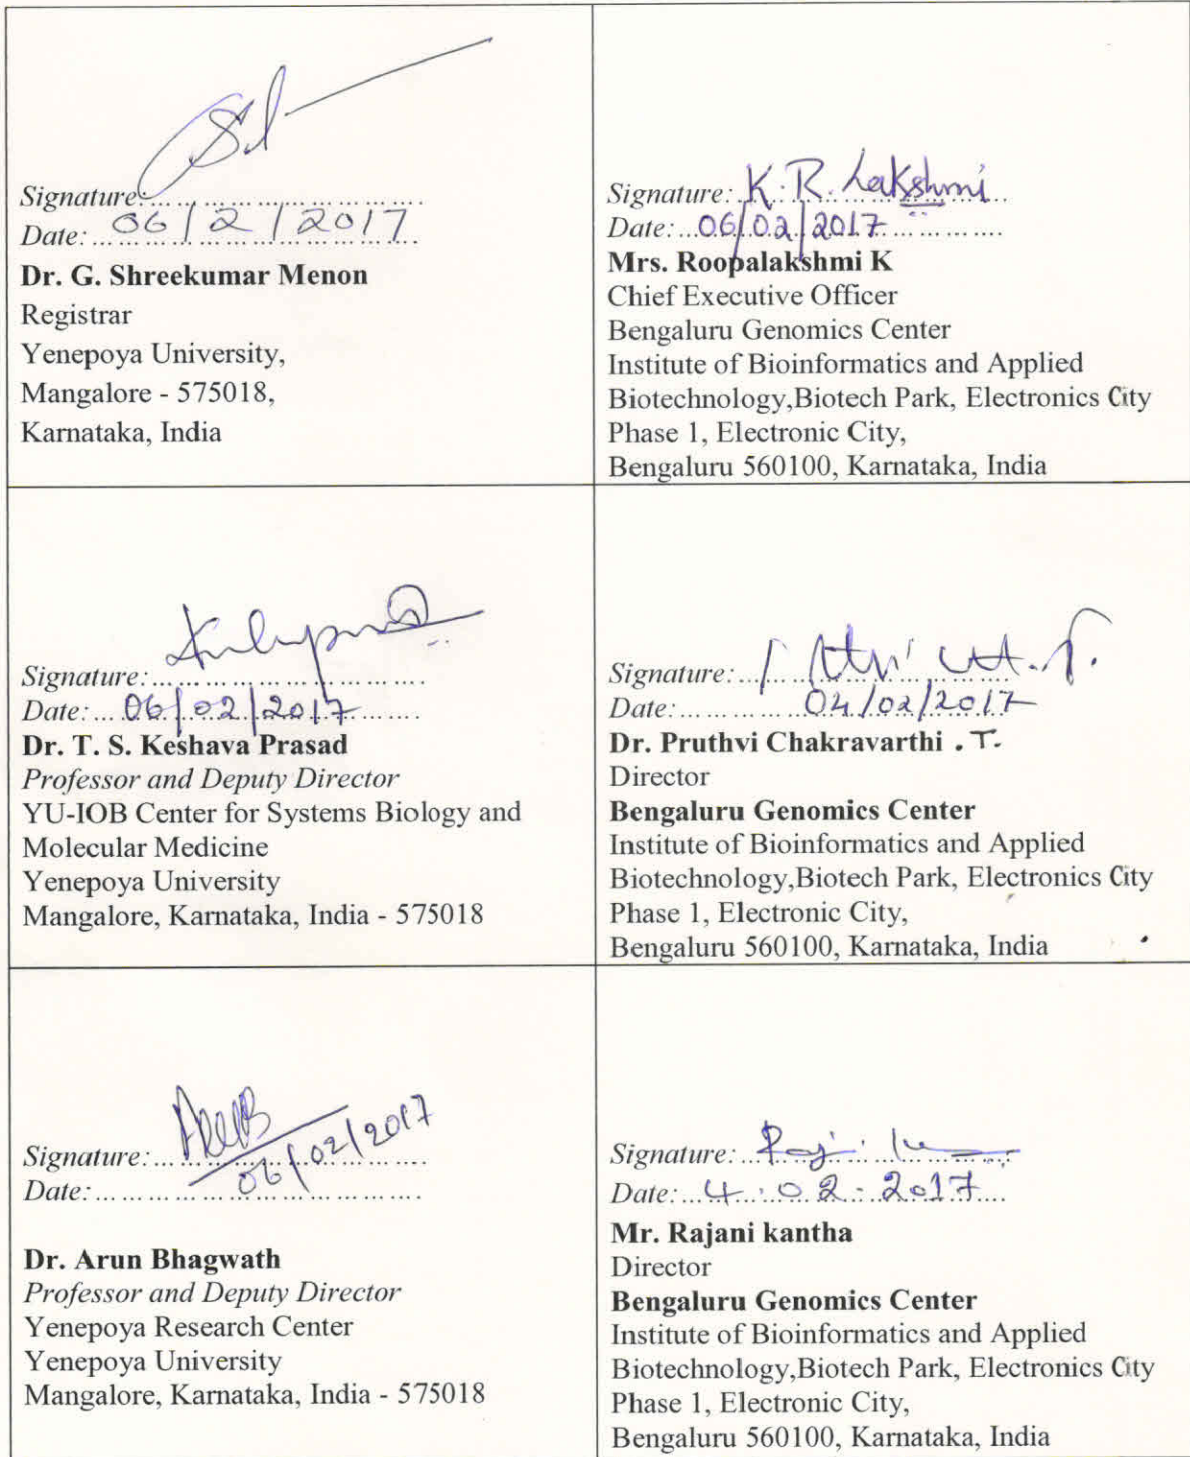 Signature:
Date: 06/2/2017
Dr. G. Shreekumar Menon
Registrar
Yenepoya University,
Mangalore - 575018,
Karnataka, India
Signature: K.R. Lakshmi
Date: 06/02/2017
Mrs. Roopalakshmi K
Chief Executive Officer
Bengaluru Genomics Center
Institute of Bioinformatics and Applied
Biotechnology,Biotech Park, Electronics City
Phase 1, Electronic City,
Bengaluru 560100, Karnataka, India
Signature:
Date: 06/02/2017
Dr. T. S. Keshava Prasad
Professor and Deputy Director
YU-IOB Center for Systems Biology and
Molecular Medicine
Yenepoya University
Mangalore, Karnataka, India - 575018
Signature:
Date: 04/02/2017
Dr. Pruthvi Chakravarthi .T.
Director
Bengaluru Genomics Center
Institute of Bioinformatics and Applied
Biotechnology,Biotech Park, Electronics City
Phase 1, Electronic City,
Bengaluru 560100, Karnataka, India
Signature:
Date: 06/02/2017
Dr. Arun Bhagwath
Professor and Deputy Director
Yenepoya Research Center
Yenepoya University
Mangalore, Karnataka, India - 575018
Signature:
Date: 4.02.2017
Mr. Rajani kantha
Director
Bengaluru Genomics Center
Institute of Bioinformatics and Applied
Biotechnology,Biotech Park, Electronics City
Phase 1, Electronic City,
Bengaluru 560100, Karnataka, India